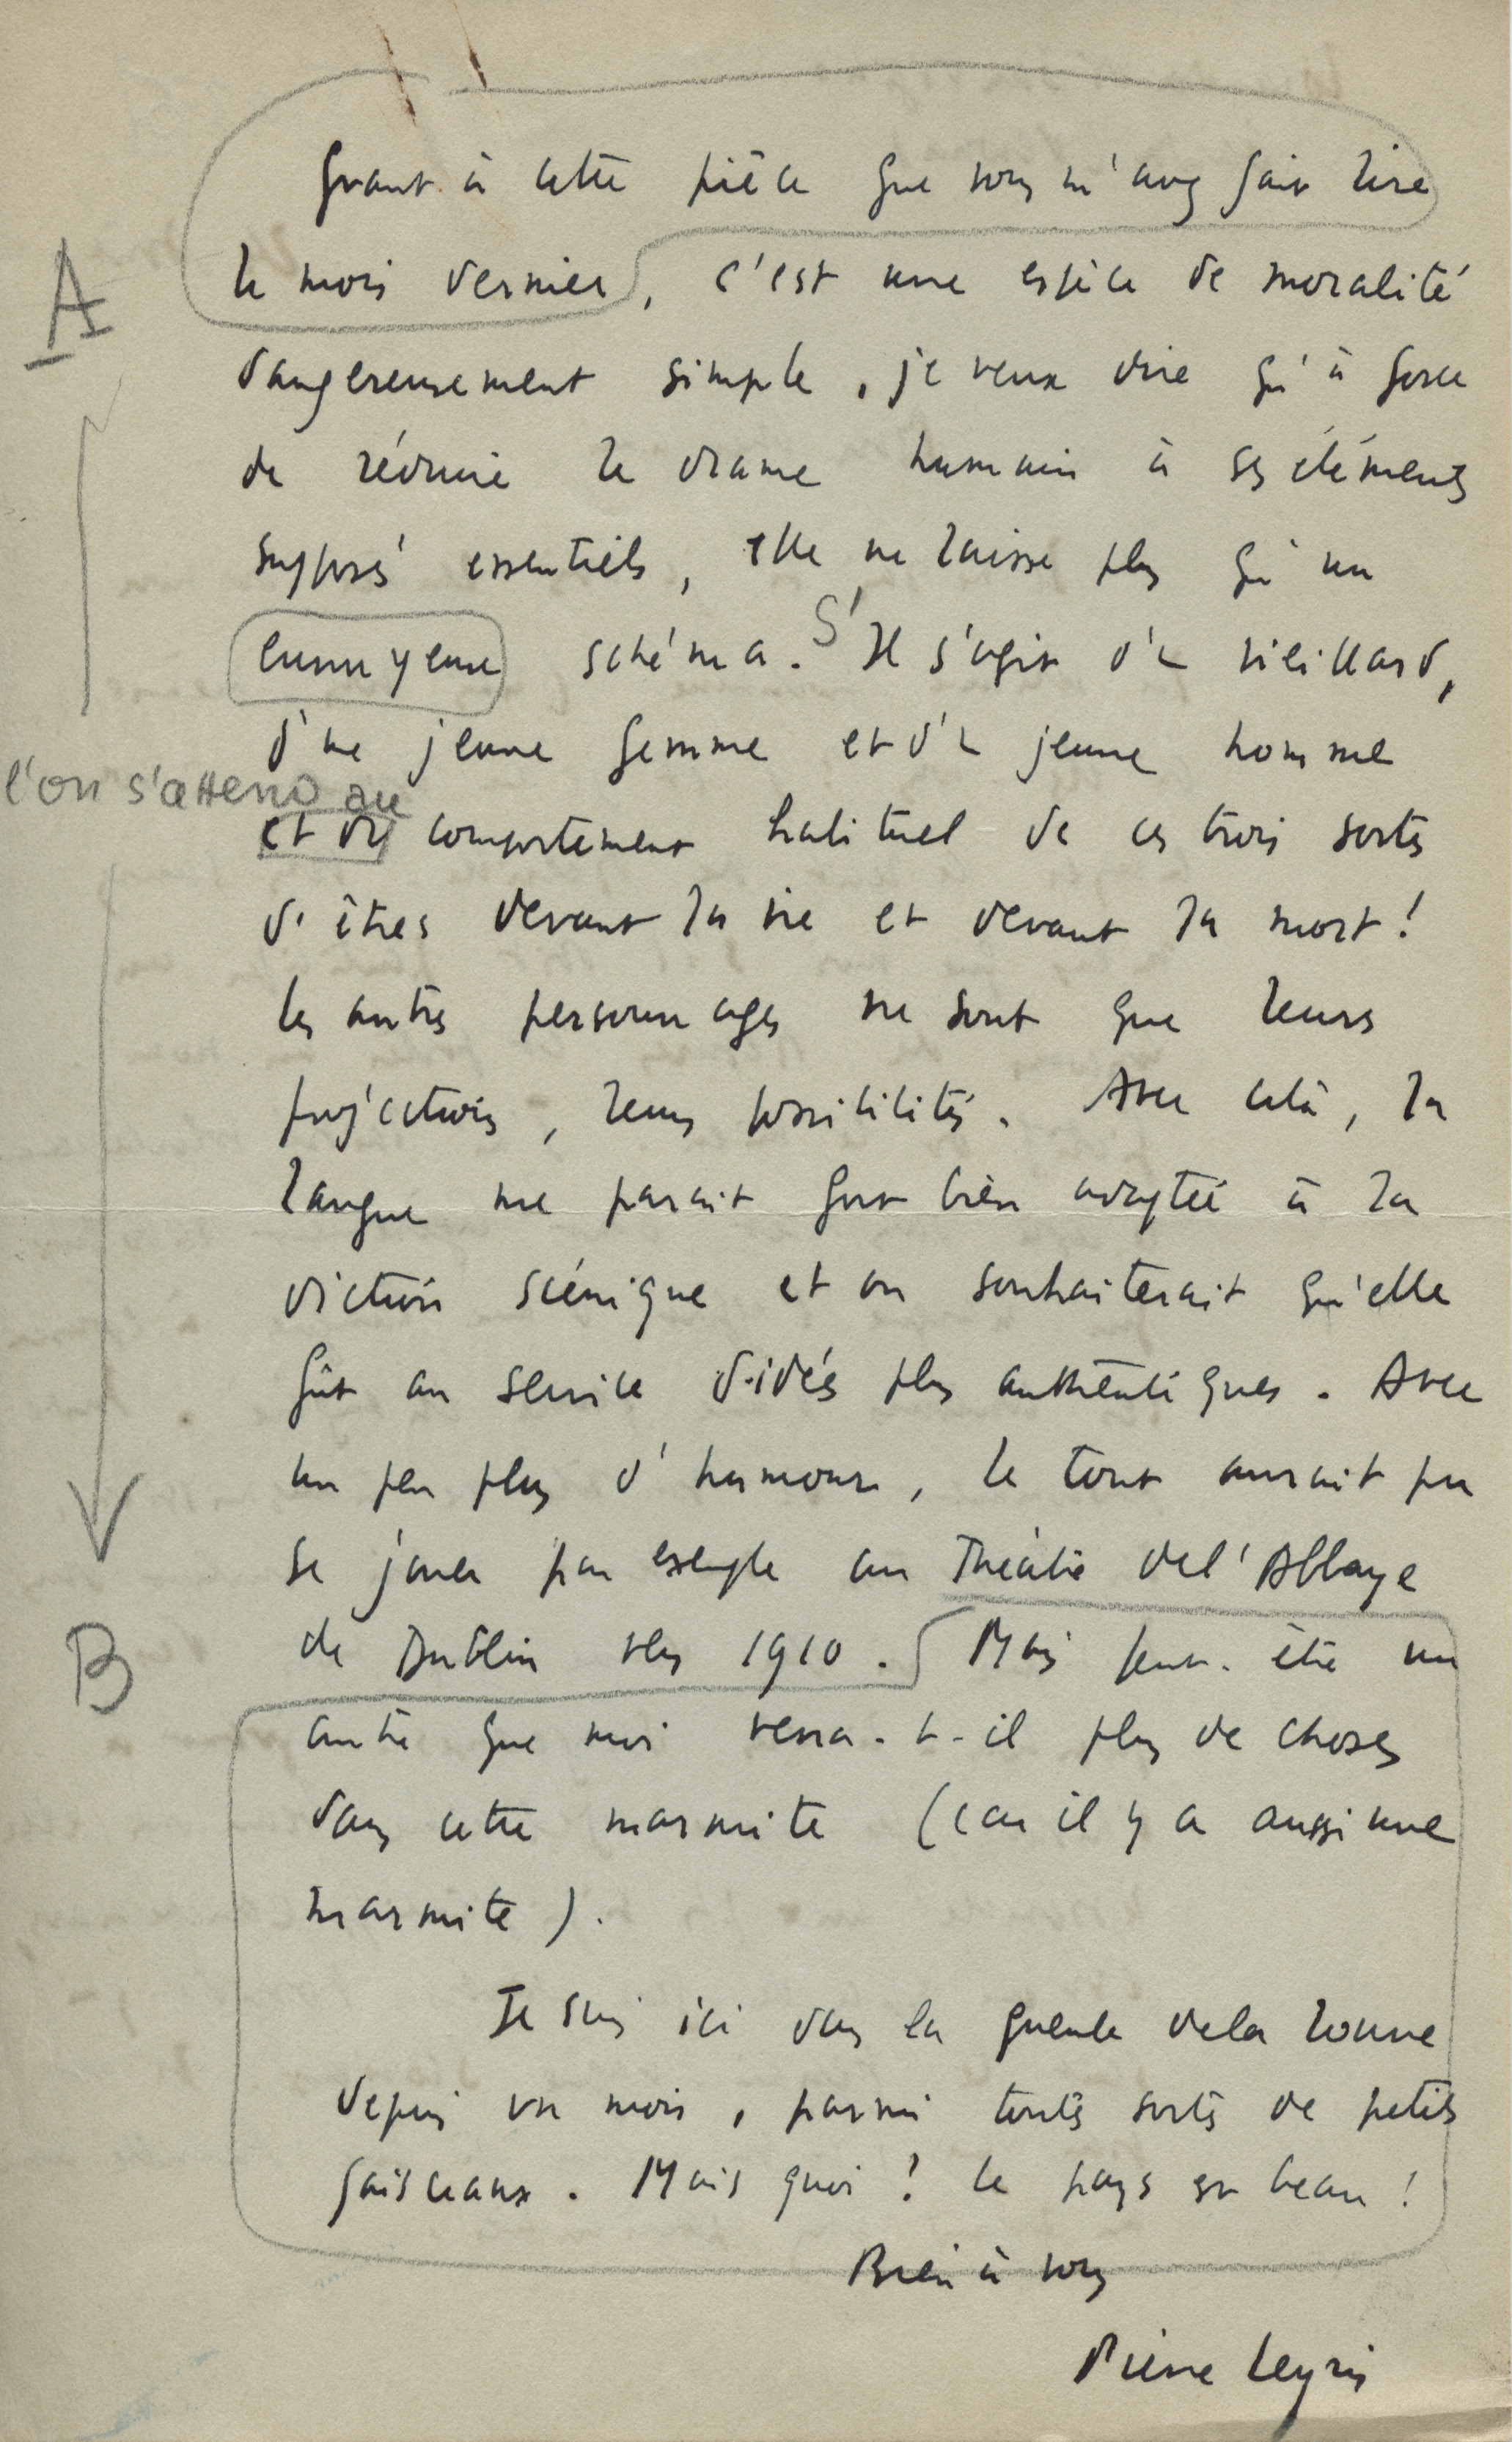 Quant à cette pièce que vous m'avez fait lire
le mois dernier, c'est une espèce de moralité
A
dangereusement simple, je veux dire qu'à force
de réduire le drame humain à ses éléments
supposés essentiels, elle ne laisse plus qu'un
ennuyeux schéma. S' Il s'agit d'un vieillard,
d'une jeune femme et d'un jeune homme
l'on s'attend au
et du comportement habituel de ces trois sortes
d'êtres devant la vie et devant la mort!
les autres personnages ne sont que leurs
projections, leurs possibilités. Avec cela, la
langue me paraît fort bien adaptée à la
diction scénique et on souhaiterait qu'elle
fût au service d'idées plus authentiques. Avec
un peu plus d'humour, le tout aurait pu
se jouer par exemple au Théâtre de l'Abbaye
de Dublin vers 1910. Mais peut-être un
B
autre que moi verra-t-il plus de choses
dans cette marmite (car il y a aussi une
marmite).
Je suis ici dans la gueule de la louve
depuis un mois, parmi toutes sortes de petits
faisceaux. Mais quoi! le pays est beau!
Bien à vous
Pierre Leyris